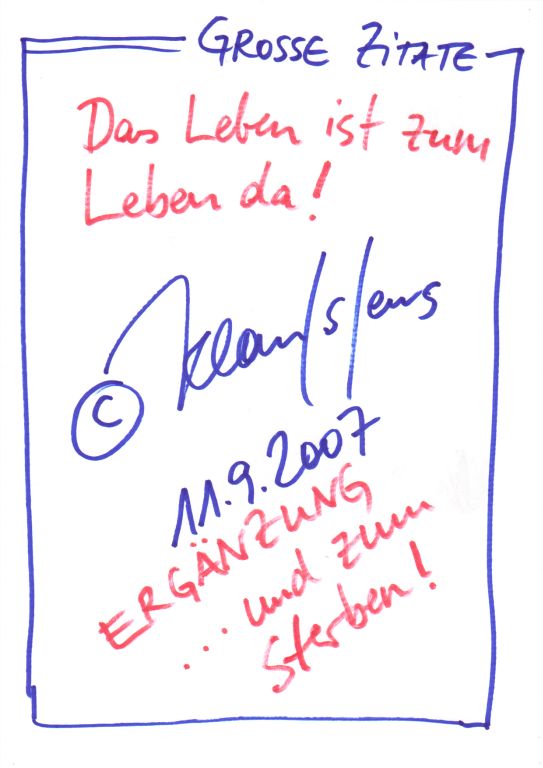 GROSSE ZITATE
Das Leben ist zum
Leben da!
©
11.9.2007
ERGÄNZUNG
... und zum
Sterben!